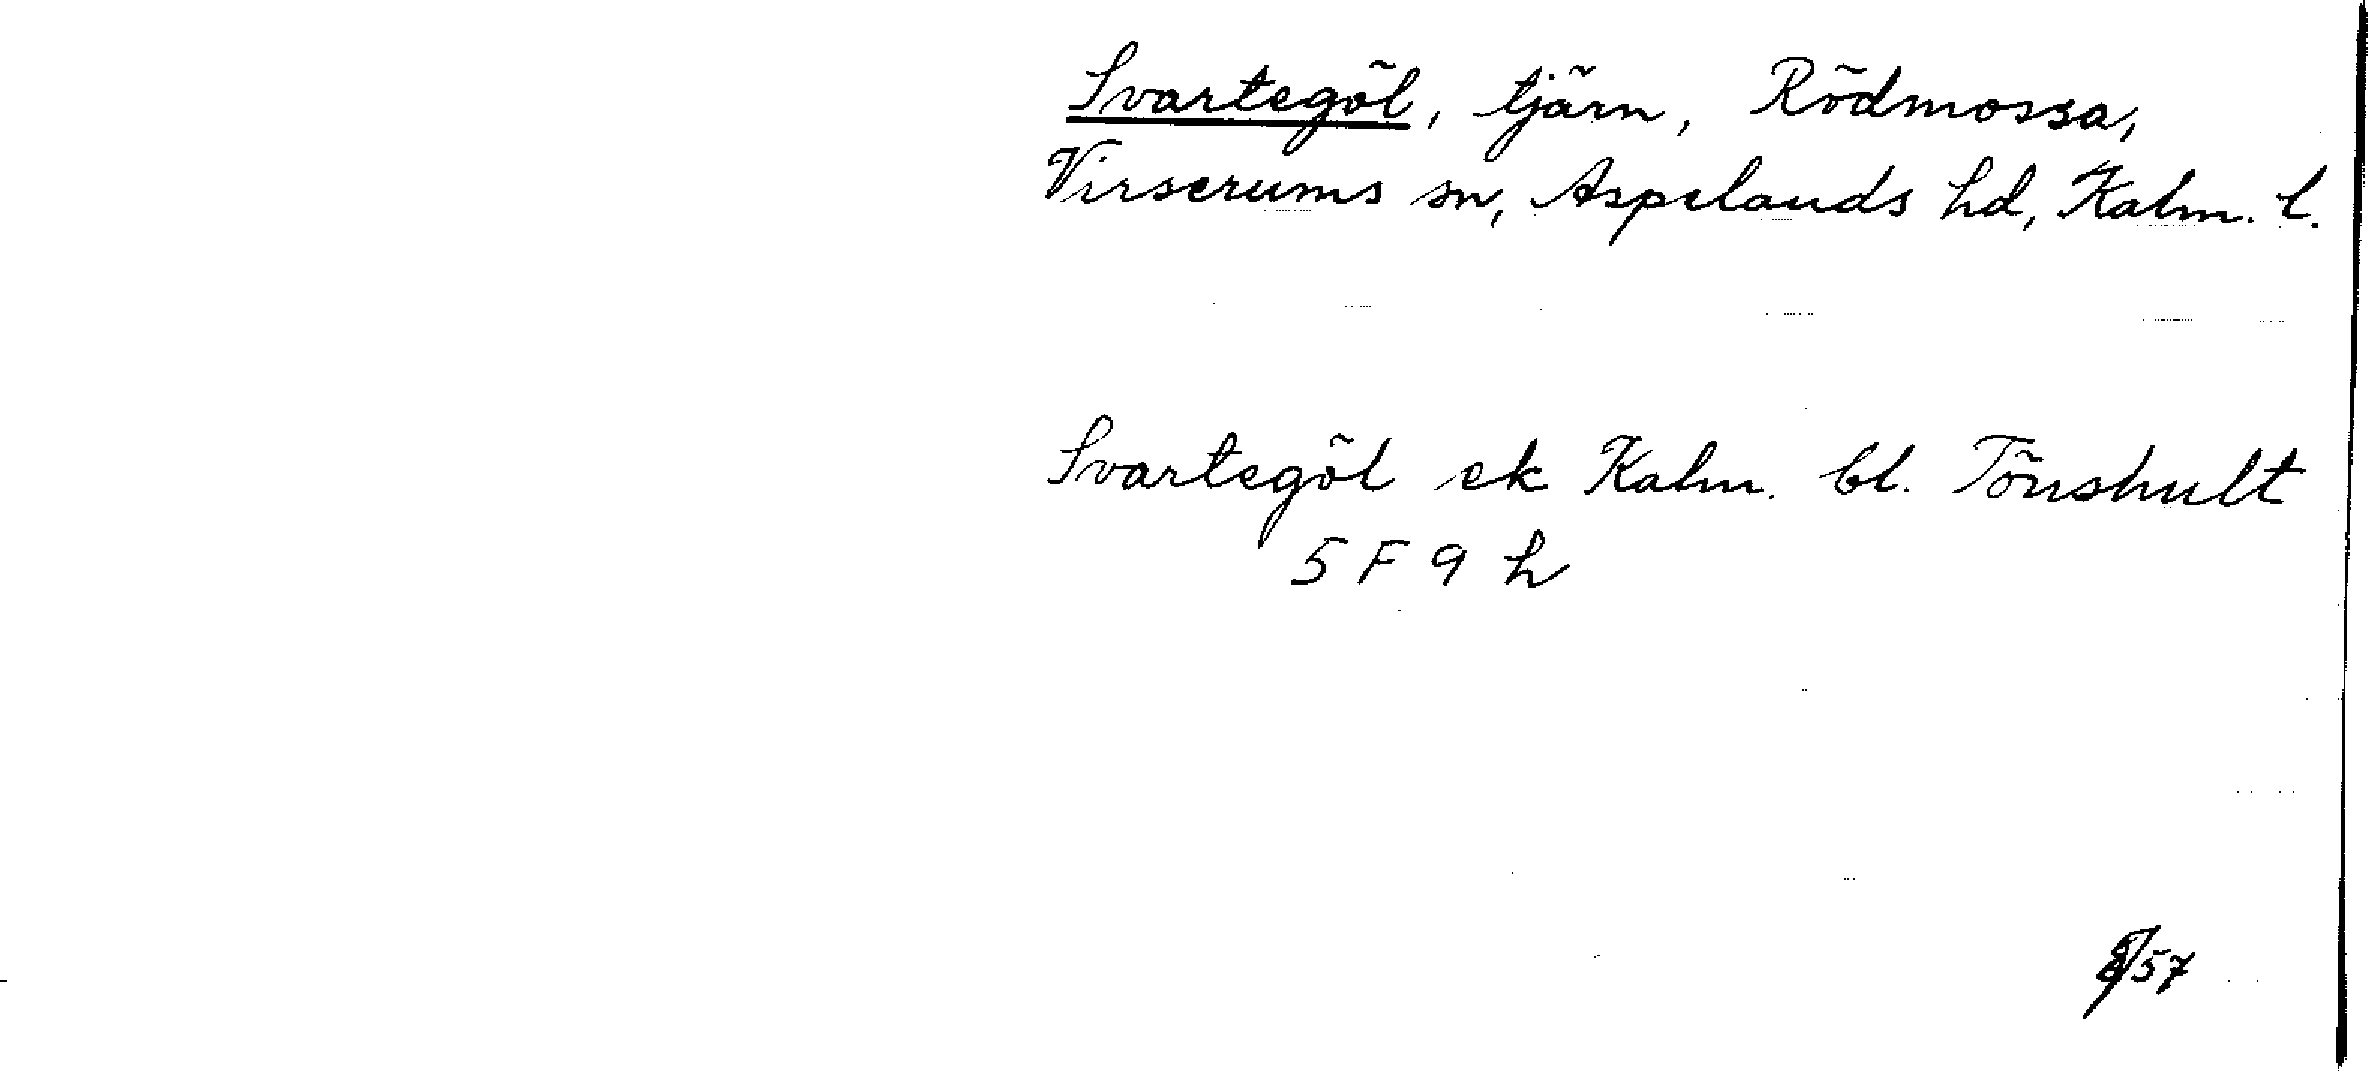 Svartegöl, tjärn, Rödmossa,
Virserums sn, Aspelands hd, Kalm. l.
Svartegöl ek Kalm. bl. Tönshult
5 F 9 h